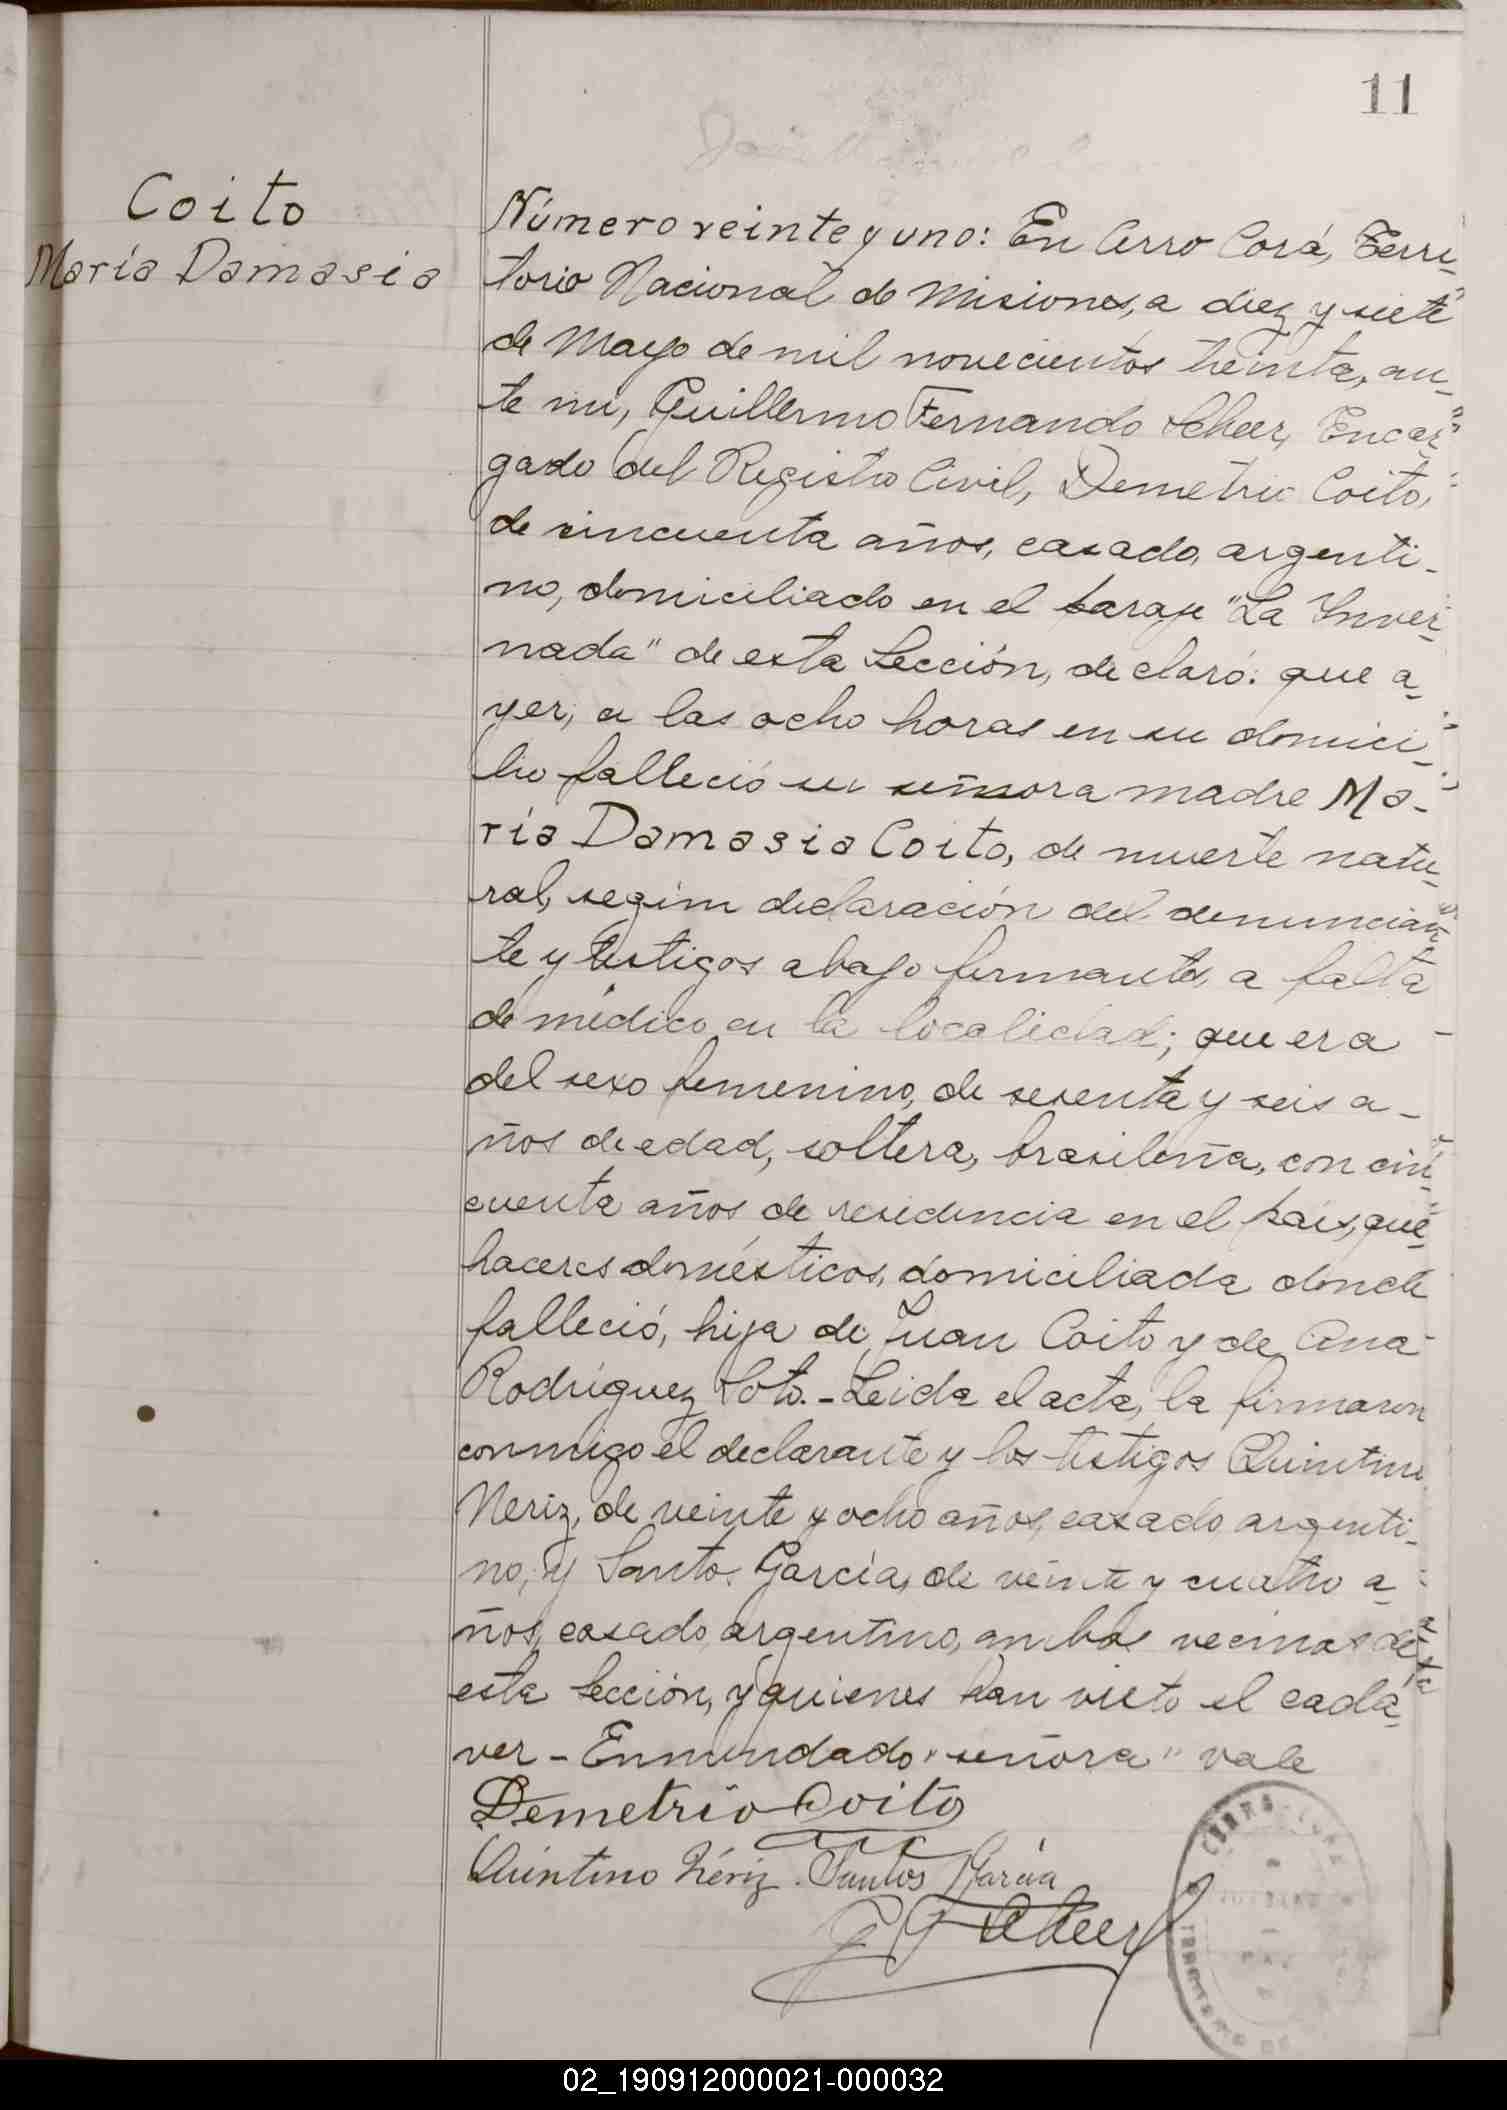 11
Coito
María Damasia
Número veinte y uno: En Cerro Corá, Terri-
torio Nacional de Misiones, a diez y siete
de Mayo de mil novecientos treinta, an-
te mi, Guillermo Fernando Scheer, Encar-
gado del Registro Civil, Demetrio Coito,
de cincuenta años, casado, argenti-
no, domiciliado en el paraje "La Inver-
nada" de esta Sección, declaró: que a-
yer, a las ocho horas en su domici-
lio falleció su señora madre Ma-
ría Damasia Coito, de muerte natu-
ral, según declaración del denuncian-
te y testigos abajo firmantes, a falta
de médico en la localidad; que era
del sexo femenino, de sesenta y seis a-
ños de edad, soltera, brasileña, con cin-
cuenta años de residencia en el país, que-
haceres domésticos, domiciliada donde
falleció, hija de Juan Coito y de Ana
Rodríguez Soto. - Leida el acta, la firmaron
conmigo el declarante y los testigos Quintino
Neriz, de veinte y ocho años, casado, argenti-
no, y Santos García, de veinte y cuatro a-
ños, casado, argentino, ambos vecinos de
esta Sección, y quienes han visto el cadá-
ver - Enmendado "señora" vale
Demetrio Coito
Quintino Nériz. Santos García
G F Scheer
02_190912000021-000032